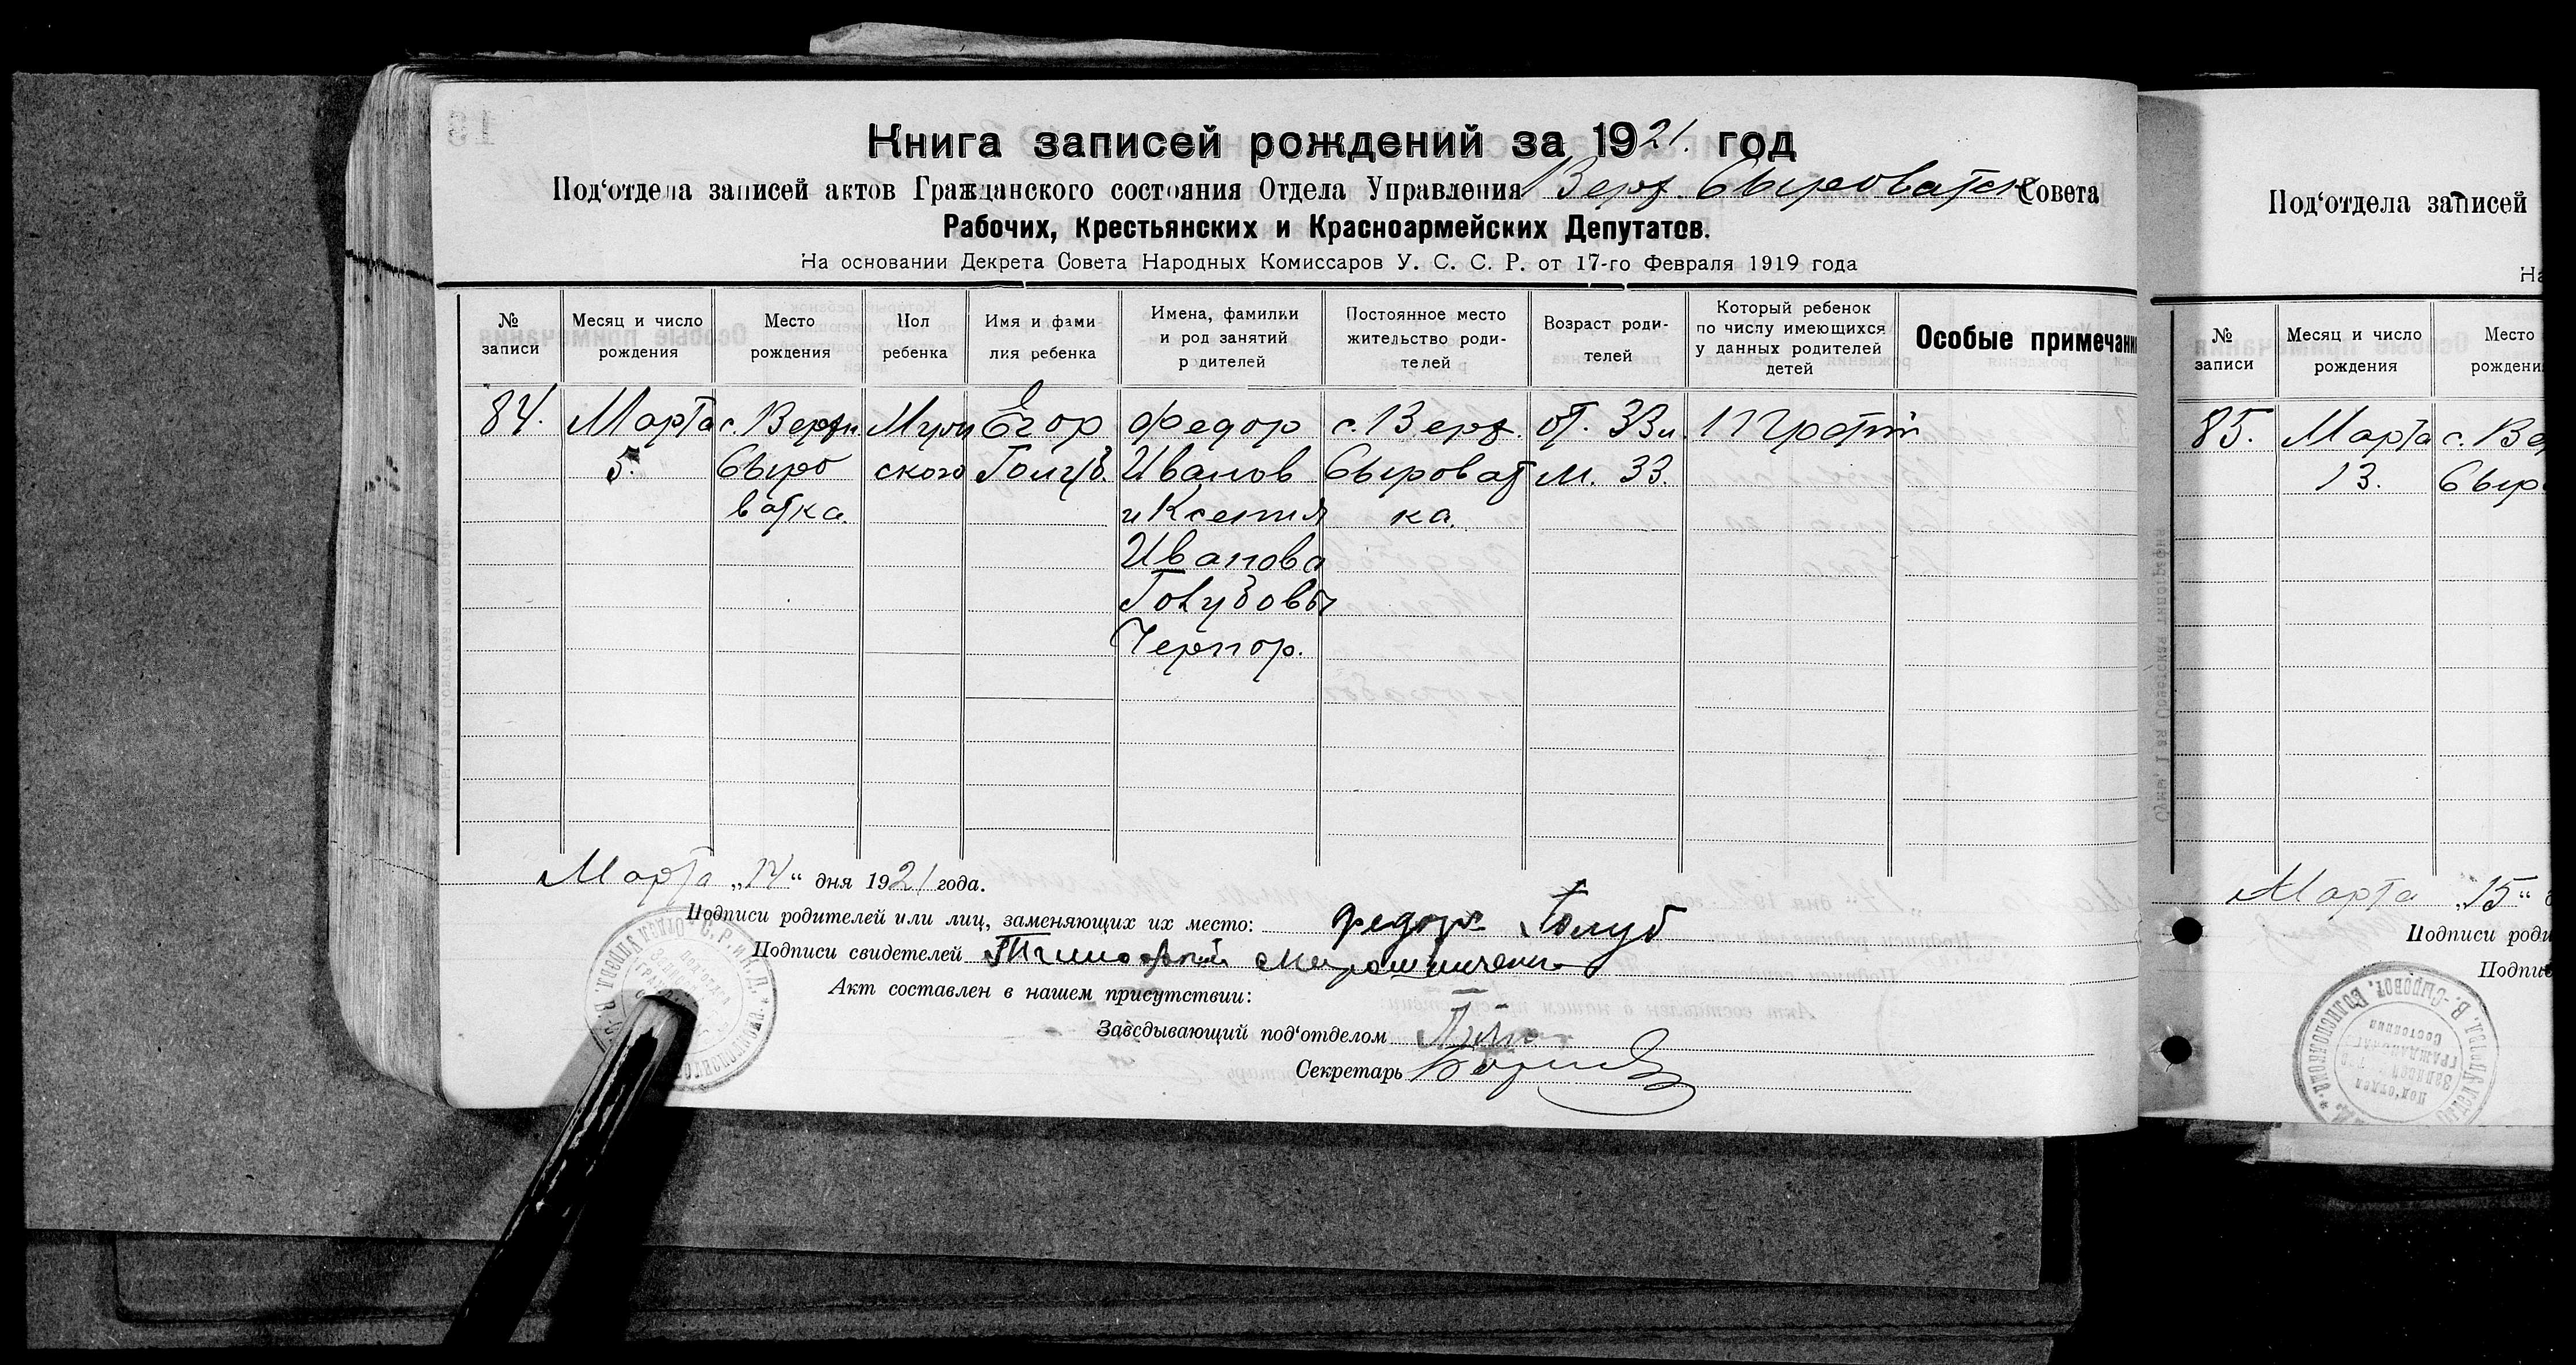 Книга записей рождений за 1921. год
Под‘отдела записей актов Гражданского состояния Отдела Управления Верх. Сыроватск Совета
Рабочих, Крестьянских и Красноармейских Депутатов.
На основании Декрета Совета Народных Комиссаров У. С. С. Р. от 17-го Февраля 1919 года
№ записи
Месяц и число рождения
Место рождения
Пол ребенка
Имя и фами
лия ребенка
Имена, фамилии
и род занятий
родителей
Постоянное место
жительство роди-
телей
Возраст роди-
телей
Который ребенок
по числу имеющихся
у данных родителей
детей
Особые примечани
84.
Марта
5.
с. Верхн.
Сыро
ватка.
Муж
ского
Егор
Голуб.
Федор
Иванов
и Ксения
Иванова
Голубовы
Чернор.
с. Верх.
Сыроват
ка.
от. 33 л.
м. 33.
Марта „14“ дня 1921 года.
Подписи родителей или лиц, заменяющих их место: Федор Голуб
Подписи свидетелей Тимофей Мирошниченко
Акт составлен в нашем присутствии:
Заведывающий под‘отделом
Секретарь
Под‘отдела записей
На
№ записи
Месяц и число рождения
Место
рождени
85.
Марта
13.
с. Ве
Сыр
Марта „15“
Подписи роди
Подпис